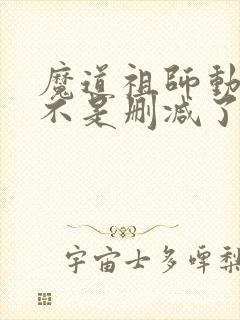 魔道祖師動
不是刪減了
宇宙士多啤梨